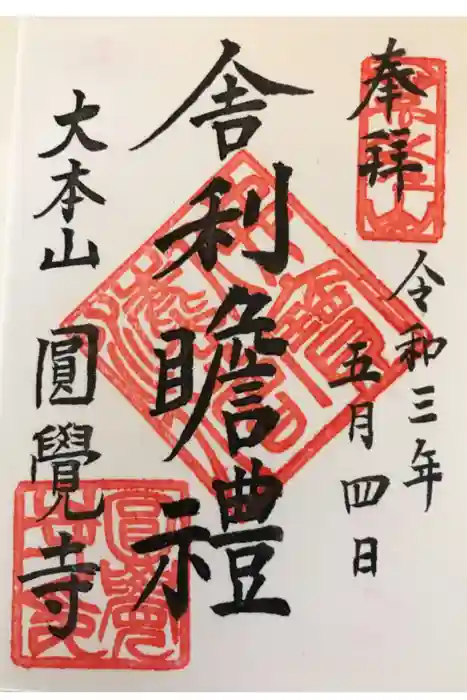 奉拝
令和三年
五月四日
舎利瞻禮
大本山
圓覺寺